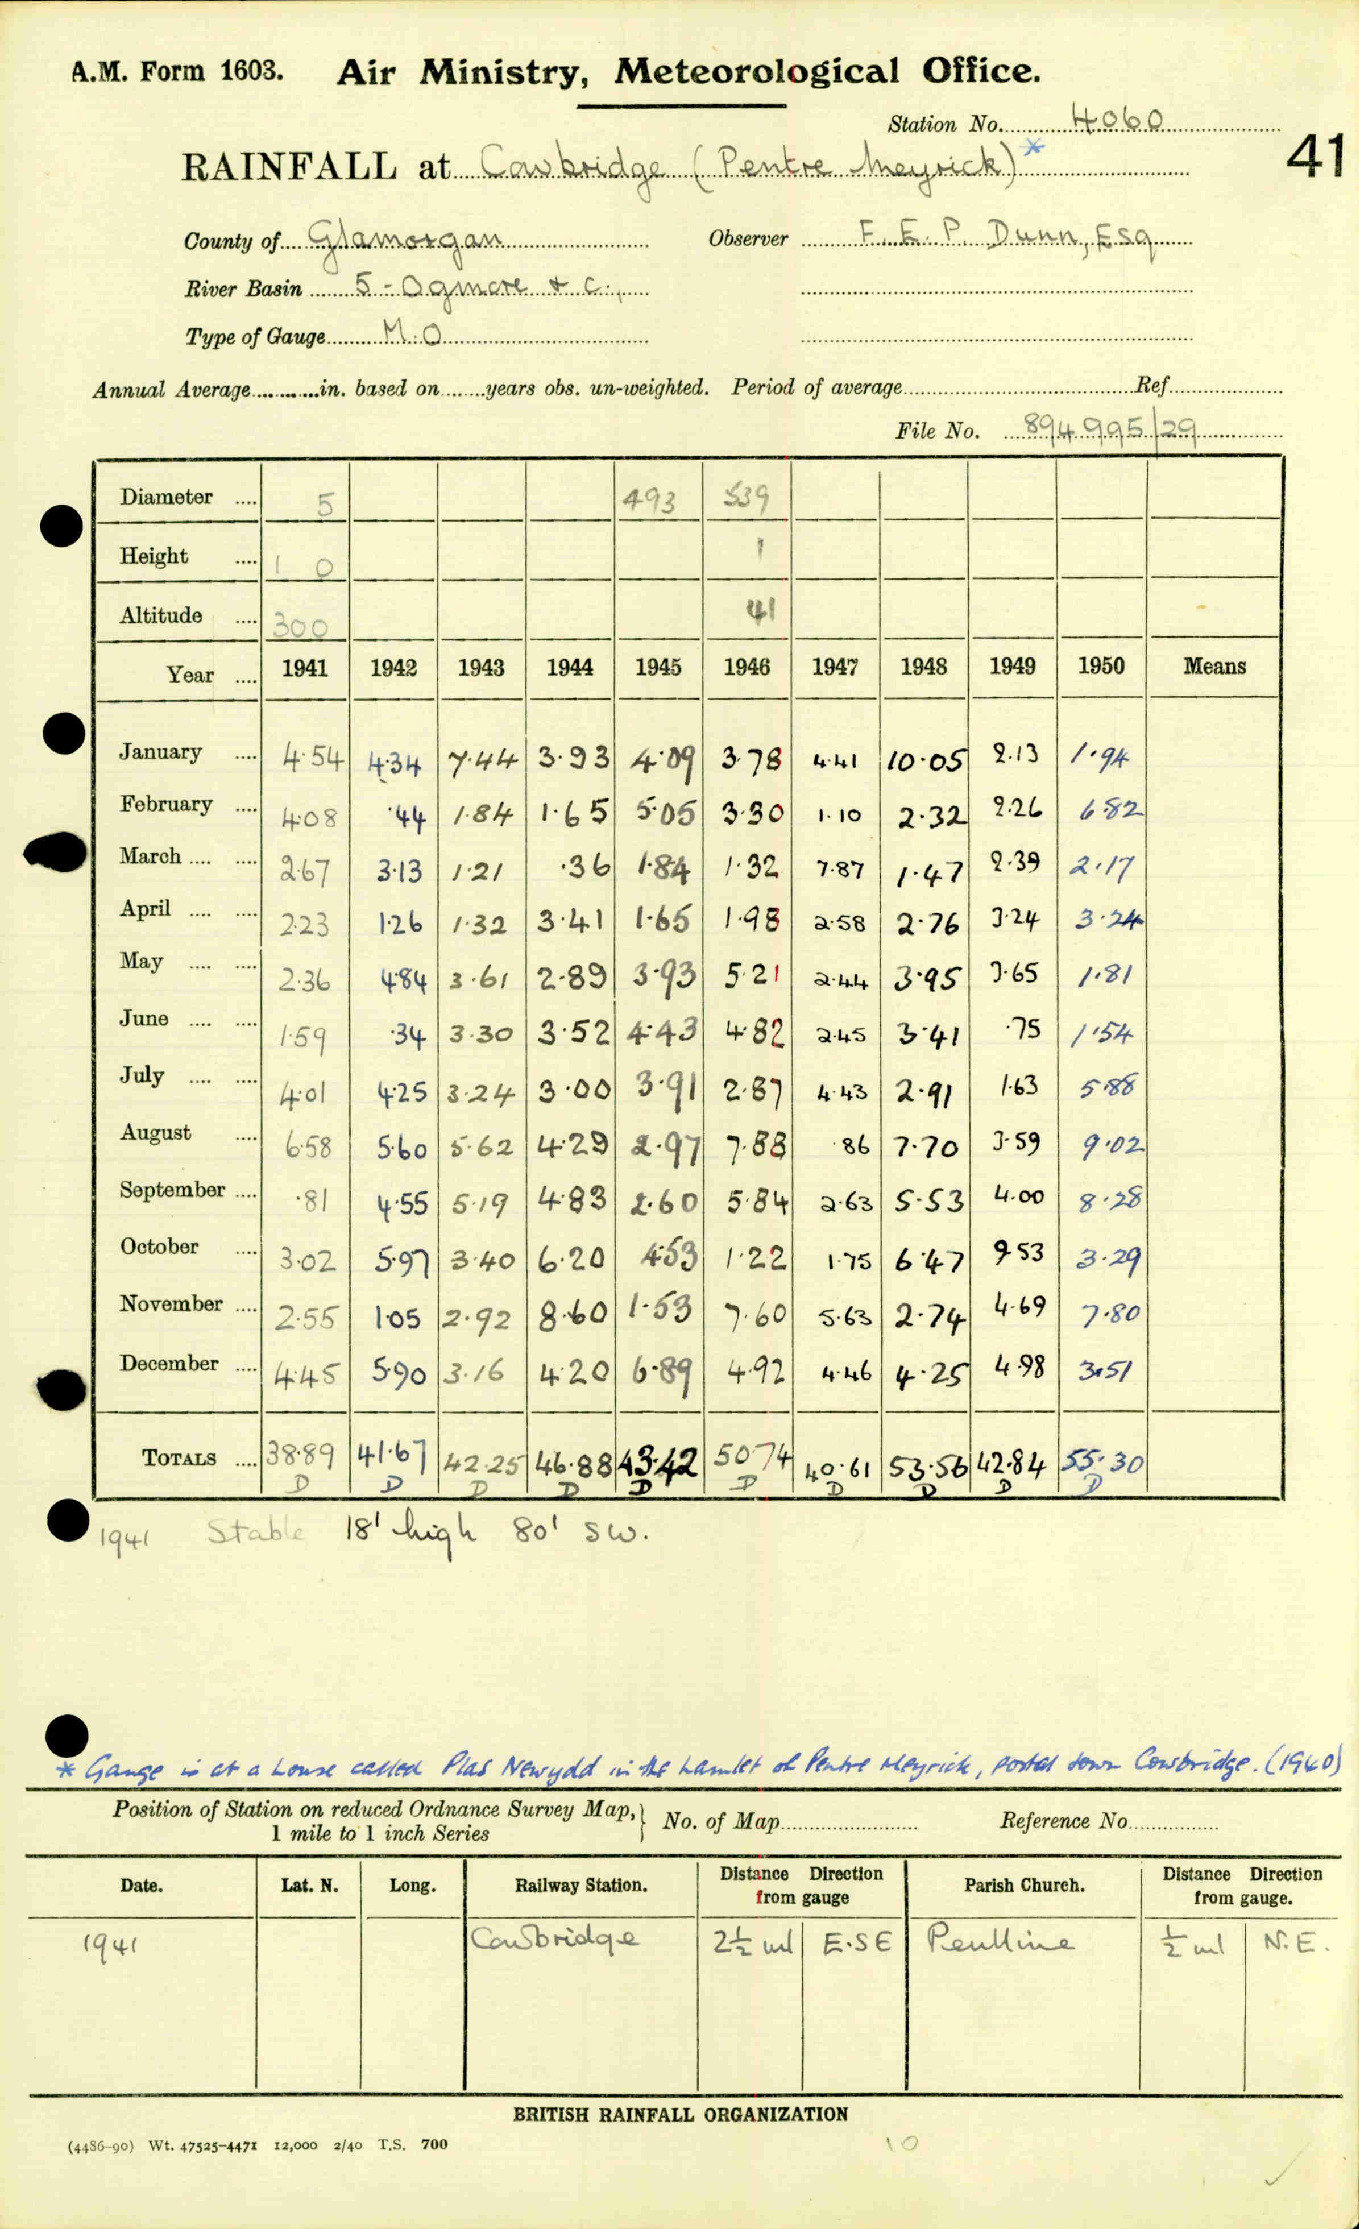 A.M. Form 1603. Air Ministry, Meteorological Office.
Station No. 4060
41
RAINFALL at Cowbridge (Pentre Meyrick) *
County of Glamorgan Observer F. E. P. Dunn, Esq
River Basin 5 - Ogmore & c.,
Type of Gauge M.O
Annual Average in. based on years obs. un-weighted. Period of average Ref
File No. 894995/29
Diameter .... 5 493 539
Height .... 1 0 1
Altitude .... 300 41
Year .... 1941 1942 1943 1944 1945 1946 1947 1948 1949 1950 Means
January .... 4.54 4.34 7.44 3.93 4.09 3.78 4.41 10.05 2.13 1.94
February .... 4.08 .44 1.84 1.65 5.05 3.30 1.10 2.32 2.26 6.82
March .... .... 2.67 3.13 1.21 .36 1.84 1.32 7.87 1.47 2.39 2.17
April .... .... 2.23 1.26 1.32 3.41 1.65 1.98 2.58 2.76 3.24 3.24
May .... .... 2.36 4.84 3.61 2.89 3.93 5.21 2.44 3.95 3.65 1.81
June .... .... 1.59 .34 3.30 3.52 4.43 4.82 2.45 3.41 .75 1.54
July .... .... 4.01 4.25 3.24 3.00 3.91 2.87 4.43 2.91 1.63 5.88
August .... 6.58 5.60 5.62 4.29 2.97 7.88 .86 7.70 3.59 9.02
September .... .81 4.55 5.19 4.83 2.60 5.84 2.63 5.53 4.00 8.28
October .... 3.02 5.97 3.40 6.20 4.53 1.22 1.75 6.47 9.53 3.29
November .... 2.55 1.05 2.92 8.60 1.53 7.60 5.63 2.74 4.69 7.80
December .... 4.45 5.90 3.16 4.20 6.89 4.92 4.46 4.25 4.98 3.51
TOTALS .... 38.89 41.67 42.25 46.88 43.42 50.74 40.61 53.56 42.84 55.30
D D D D D D D D D D
1941 Stable 18' high 80' SW.
* Gauge is at a house called Plas Newydd in the hamlet of Pentre Meyrick, postal town Cowbridge. (1940)
Position of Station on reduced Ordnance Survey Map, } No. of Map Reference No
1 mile to 1 inch Series
Date. Lat. N. Long. Railway Station. Distance Direction from gauge Parish Church. Distance Direction from gauge.
1941 Cowbridge 2½ ml E.SE Penlline ½ ml N.E.
BRITISH RAINFALL ORGANIZATION
(4486-90) Wt. 47525-4471 12,000 2/40 T.S. 700
10